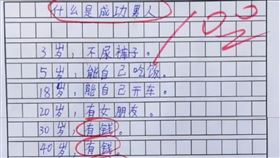 什么是成功男人
3岁，不尿裤子。
5岁，能自己吃饭。
18岁，能自己开车。
20岁，有女朋友。
30岁，有钱。
40岁，有钱。